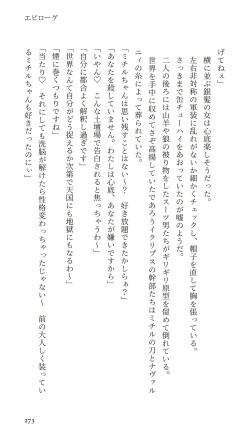 エピローグ
げてねぇ」
横に並ぶ銀髪の女は心底楽しそうだった。
左右非対称の軍装に乱れがないか細かくチェックし、帽子を直して胸を張っている。
さっきまで缶チューハイをあおっていたのが嘘のようだ。
二人の後ろには山羊や狼の被り物をしたスーツ男たちがギリギリ原型を留めて倒れている。
世界を手中に収めてさぞ高揚していたであろうイクリプスの幹部たちはミチルの刀とナヴァル
ニィの糸によって葬られていた。
「ミチルちゃんは思い残すことはない〜？　好き放題できたかしらぁ？」
「あなたを殺していません。わたしは心底、あなたが嫌いですから」
「いやん♡　こんな土壇場で告白されると焦っちゃうわ〜」
「自分に都合よく解釈し過ぎです」
「世界なんて自分がどう捉えるか次第で天国にも地獄にもなるわ〜」
「煙に巻くつもりですね」
「当たり♡　それにしても洗脳が解けたら性格変わっちゃったじゃない〜　前の大人しく装ってい
るミチルちゃんも好きだったのにぃ」
273